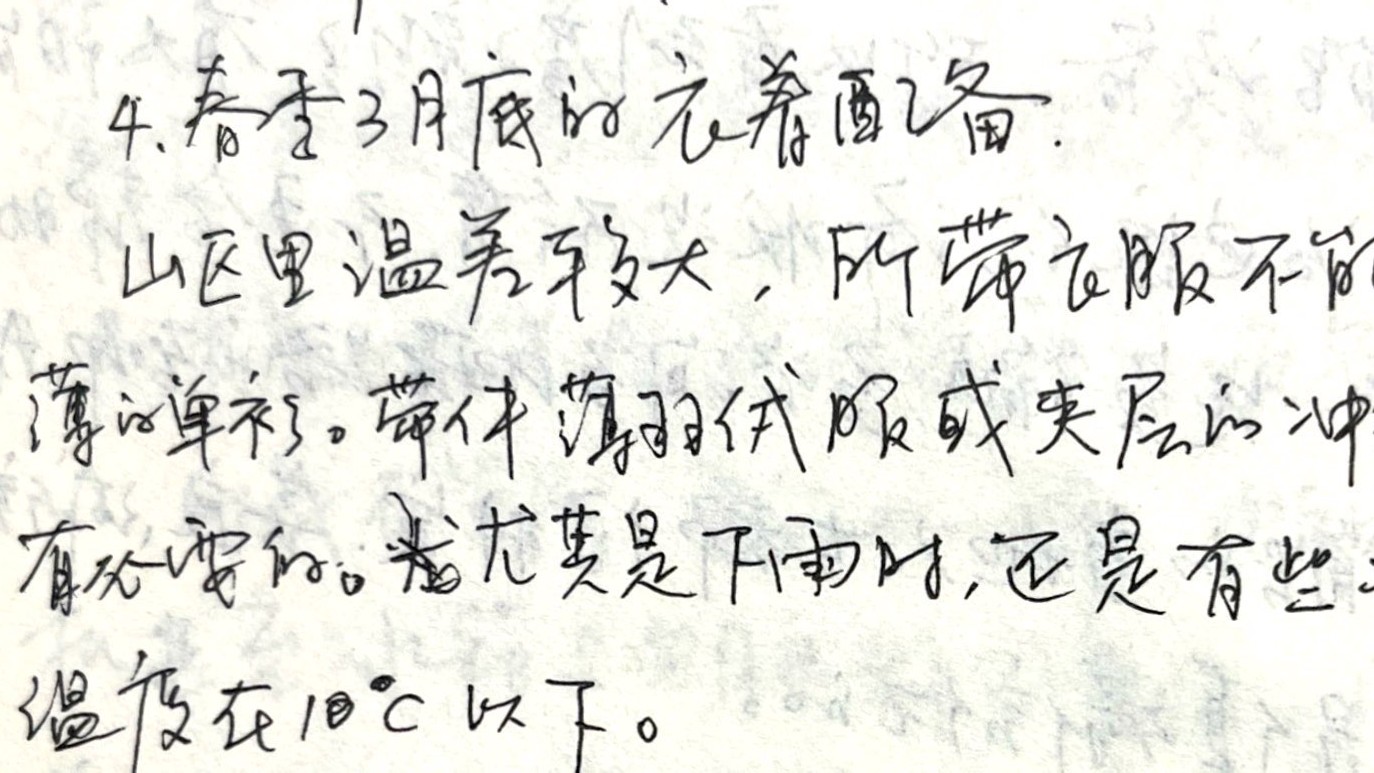 4. 春季3月底的衣着配备.
山区里温差较大，所带衣服不能
薄的单衫。带件薄羽绒服或夹层的冲
有必要的。尤其是下雨时，还是有些
温度在10℃以下。